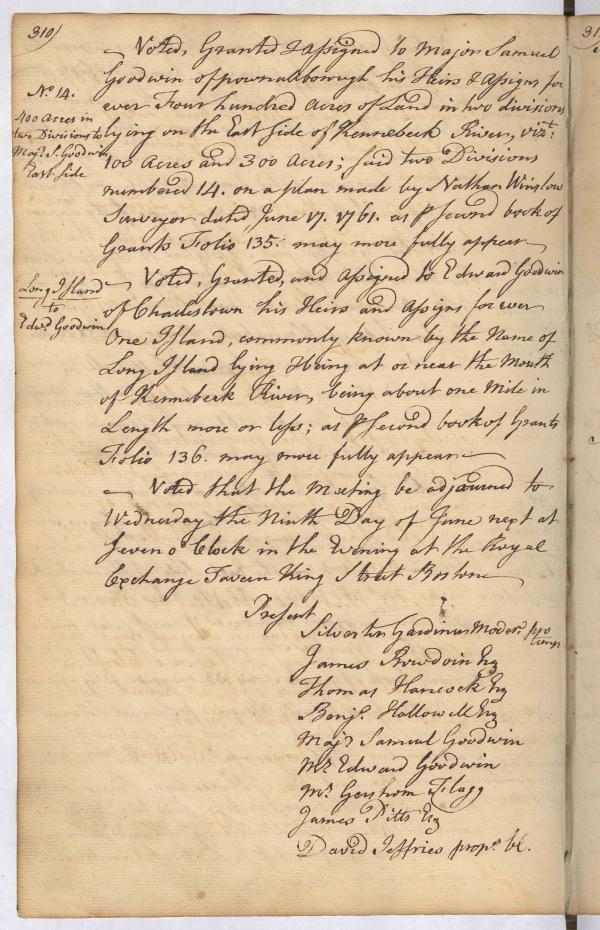 310)
Voted, Granted & assigned to Major Samuel
Goodwin of pownalborough his Heirs & Assigns for
ever Four hundred Acres of Land in two divisions
lying on the East side of Kennebeck River, vizt:
100 Acres and 300 Acres; said two Divisions
numbered 14. on a plan made by Nathan Winslow
Surveyor dated June 17. 1761. as ꝑ second book of
Grants Folio 135. may more fully appear
No. 14.
400 Acres in
two Divisions to
Majr. S. Goodwin
East side
Voted, Granted, and assigned to Edward Goodwin
of Charlestown his Heirs and Assigns for ever
One Island, commonly known by the Name of
Long Island lying & being at or near the Mouth
of Kennebeck River, being about one Mile in
Length more or less; as ꝑ second book of Grants
Folio 136. may more fully appear
Long Island
to
Edwd. Goodwin
Voted that the Meeting be adjourned to
Wednesday the Ninth Day of June next at
seven o Clock in the Evening at the Royal
Exchange Tavern King Street Boston
Present
Silvester Gardiner Moder. pro
temp
James Bowdoin Esq
Thomas Hancock Esq
Benja. Hallowell Esq
Majr Samuel Goodwin
Mr. Edward Goodwin
Mr. Gershom Flagg
James Pitts Esq
David Jeffries proprs. Cl.
31